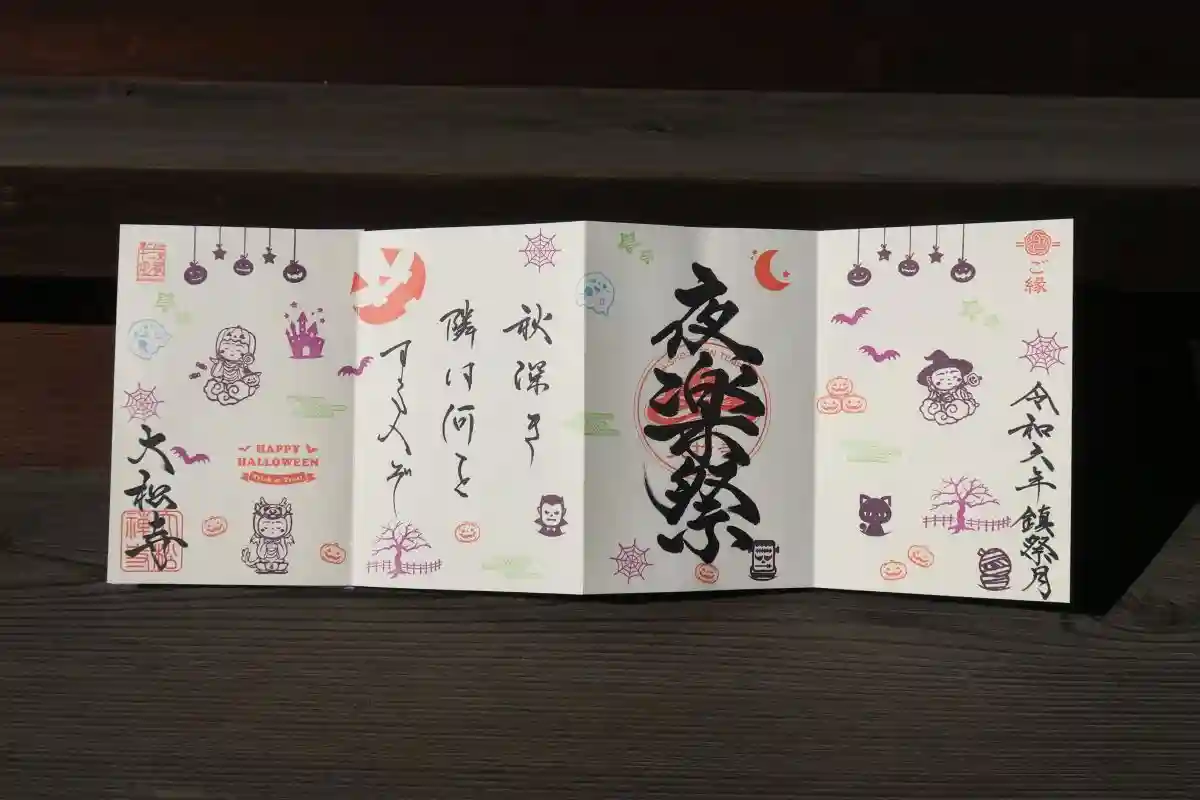 ご縁
令和六年鎮祭月
夜楽祭
秋深き
隣は何を
する人ぞ
HAPPY
HALLOWEEN
Trick or Treat!
大松寺